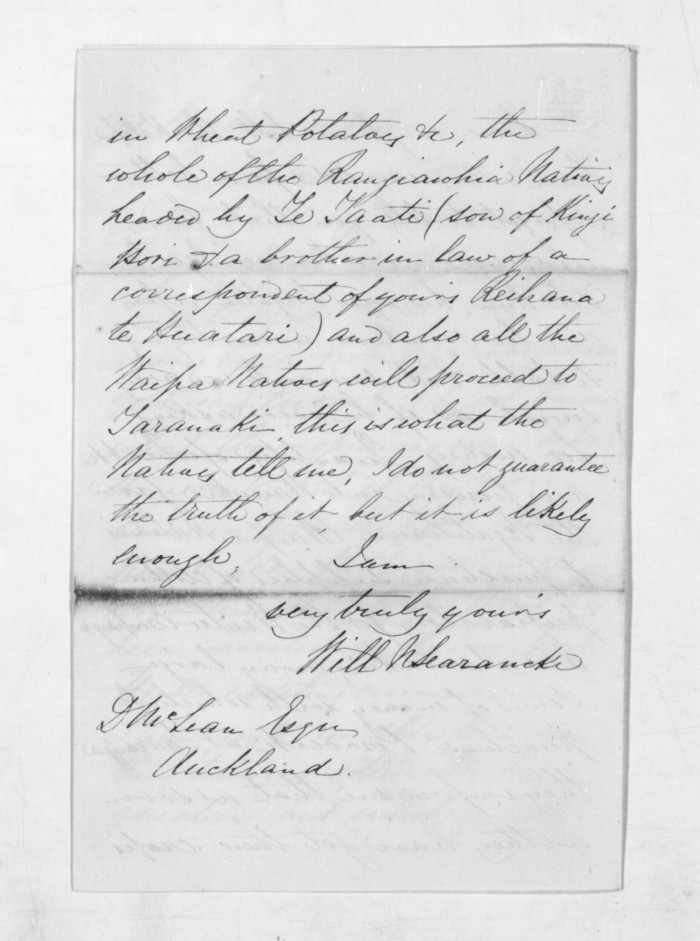 in Wheat Potatoes &c, the
whole of the Rangiaohia Natives
headed by Te Taati (son of Kingi
Hori & a brother in law of a
correspondent of yours Reihana
te Huatari) and also all the
Waipa Natives will proceed to
Taranaki, this is what the
Natives tell me, I do not guarantee
the truth of it, but it is likely
enough, I am
very truly yours
Will N Searancke
D McLean Esqre
Auckland.